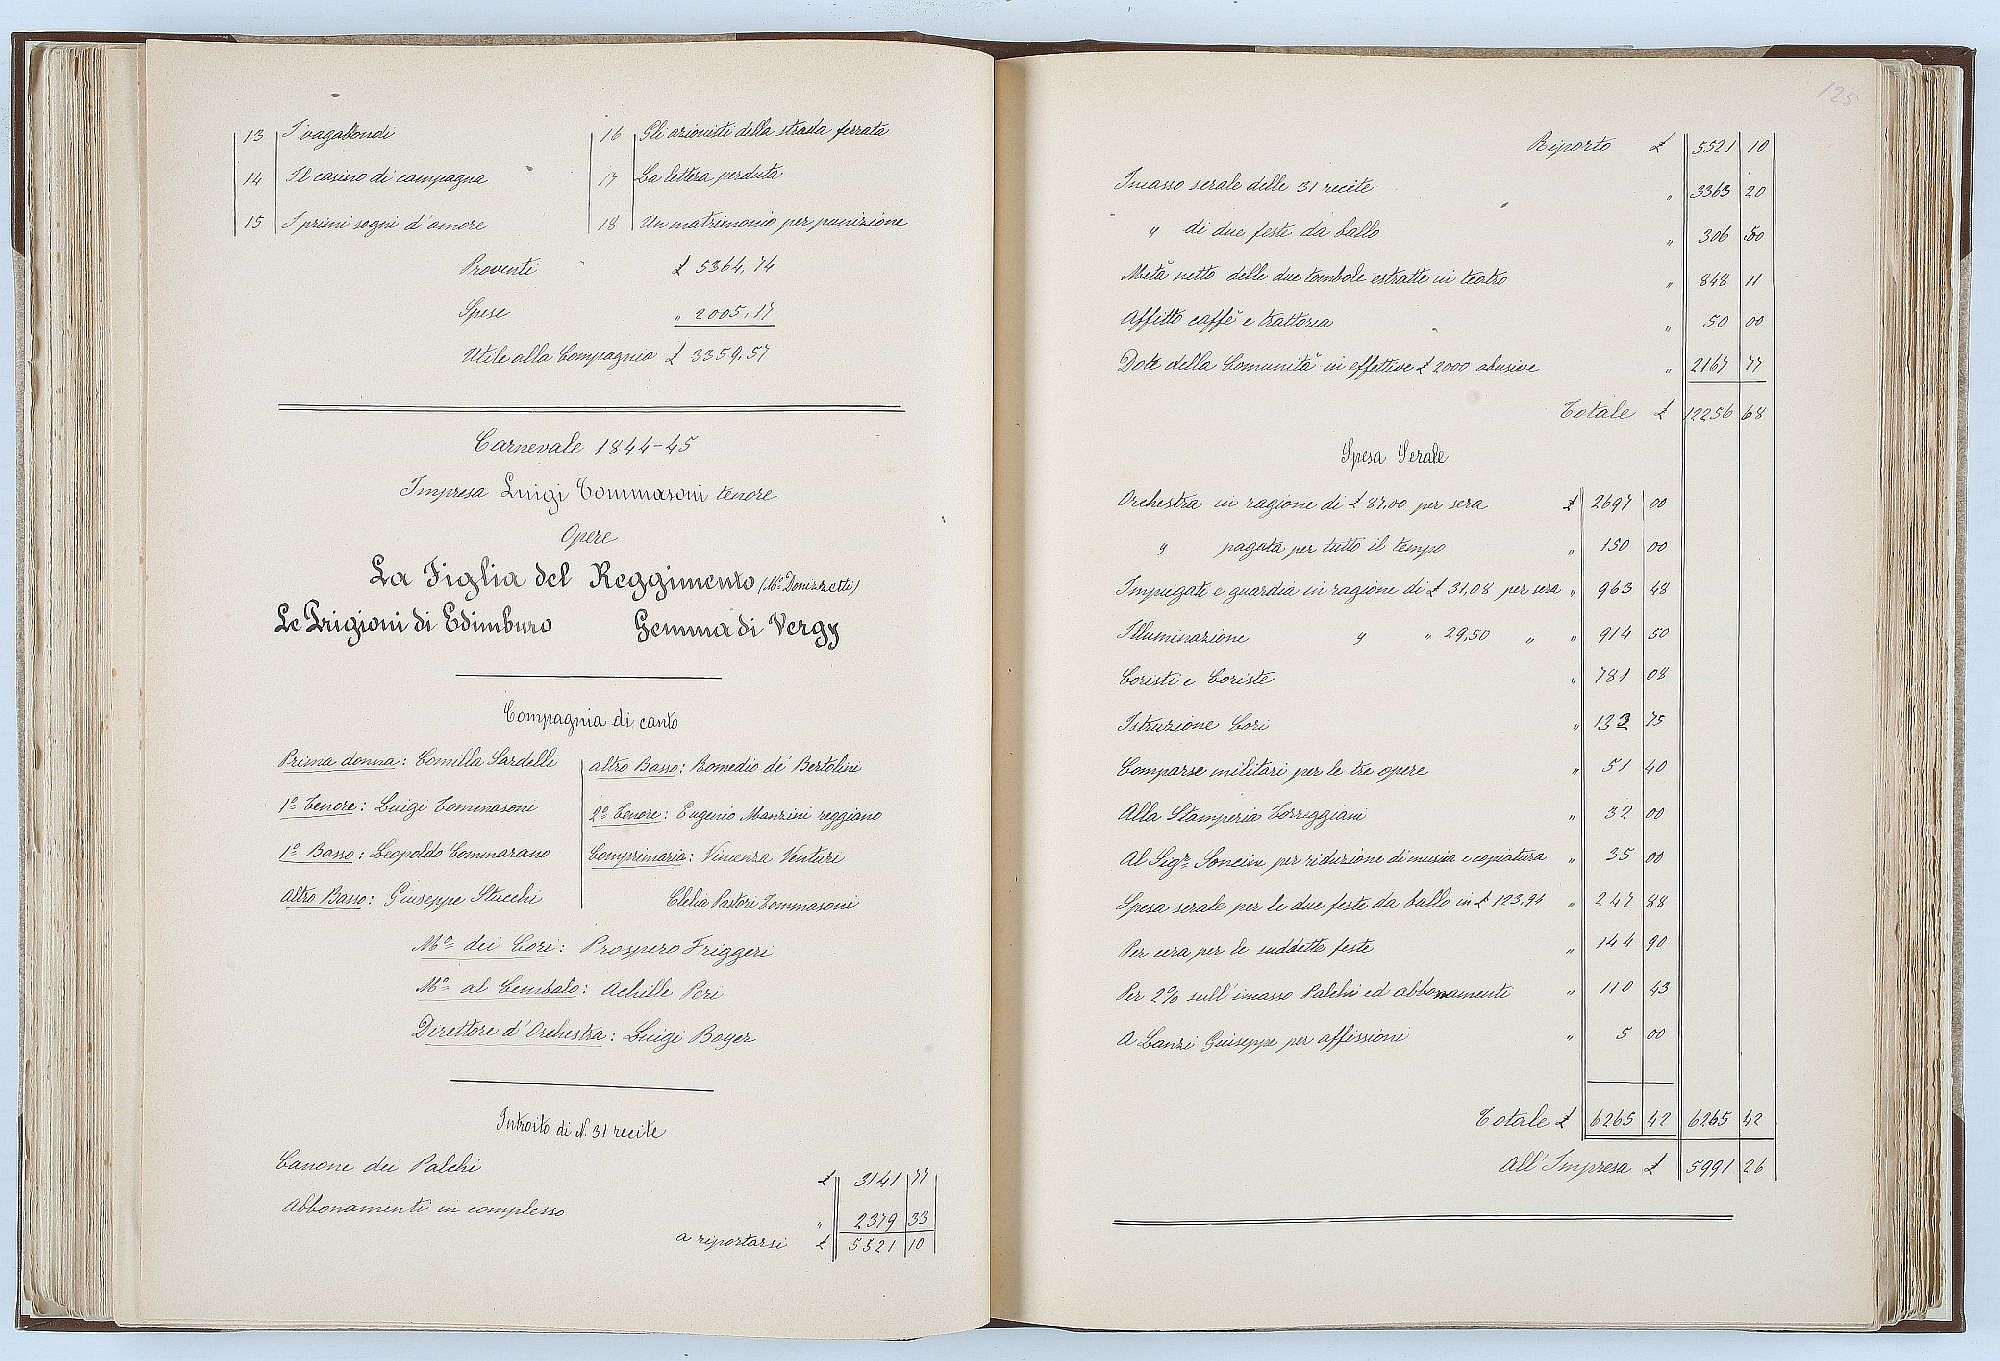 13 I vagabondi
14 Il casino di campagna
15 I primi sogni d'amore
16 Gli azionisti della strada ferrata
17 La lettera perduta
18 Un matrimonio per punizione
Proventi £ 5364,74
Spese " 2005,17
Utile alla Compagnia £ 3359,57
Carnevale 1844-45
Impresa Luigi Tommasoni tenore
Opere
La Figlia del Reggimento (Mº Donizzetti)
Le Prigioni di Edimburo Gemma di Vergy
Compagnia di canto
Prima donna: Camilla Sardelli
1º Tenore: Luigi Tommasoni
1º Basso: Leopoldo Cammarano
Altro Basso: Giuseppe Stacchi
altro Basso: Romedio de Bertolini
2º Tenore: Eugenio Manzini reggiano
Comprimaria: Vincenza Venturi
Clelia Pastori Tommasoni
Mº dei Cori: Prospero Friggeri
Mº al Cembalo: Achille Peri
Direttore d'Orchestra: Luigi Boyer
Introito di N. 31 recite
Canone dei Palchi £ 3141 77
Abbonamenti in complesso " 2379 33
a riportarsi £ 5521 10
125
Riporto £ 5521 10
Incasso serale delle 31 recite " 3363 20
" di due feste da ballo " 306 50
Metà netto delle due tombole estratte in teatro " 848 11
Affitto caffè e trattoria " 50 00
Dote della Comunità in effettive £ 2000 abusive " 2167 77
Totale £ 12256 68
Spesa Serale
Orchestra in ragione di £ 87,00 per sera £ 2697 00
" pagata per tutto il tempo " 150 00
Impiegati e guardia in ragione di £ 31,08 per sera " 963 48
Illuminazione " " 29,50 " " 914 50
Coristi e Coriste " 781 08
Istruzione Cori " 133 75
Comparse militari per le tre opere " 51 40
Alla Stamperia Torreggiani " 32 00
Al Sigr. Soncini per riduzione di musica e copiatura " 35 00
Spesa serale per le due feste da ballo in £ 123,94 " 247 88
Per cera per le suddette feste " 144 90
Per 2% sull'incasso Palchi ed abbonamenti " 110 43
A Lanzi Giuseppe per affissioni " 5 00
Totale £ 6265 42 6265 42
All'Impresa £ 5991 26